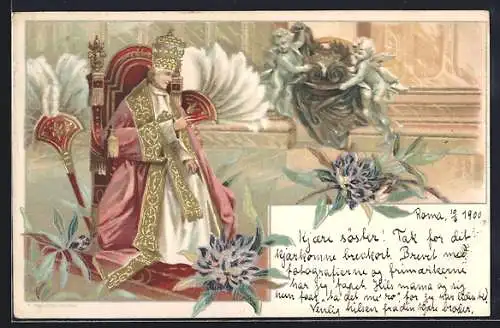 Roma, 12/2 1900
Kjære søster! Tak for det
kjærkomne brevkort. Brevet med
fotografierne og frimærkerne
har jeg faaet. Hils mama og sig
hun faar "ta' det me' ro" for jeg har
Venlig hilsen fra din kjære broder.